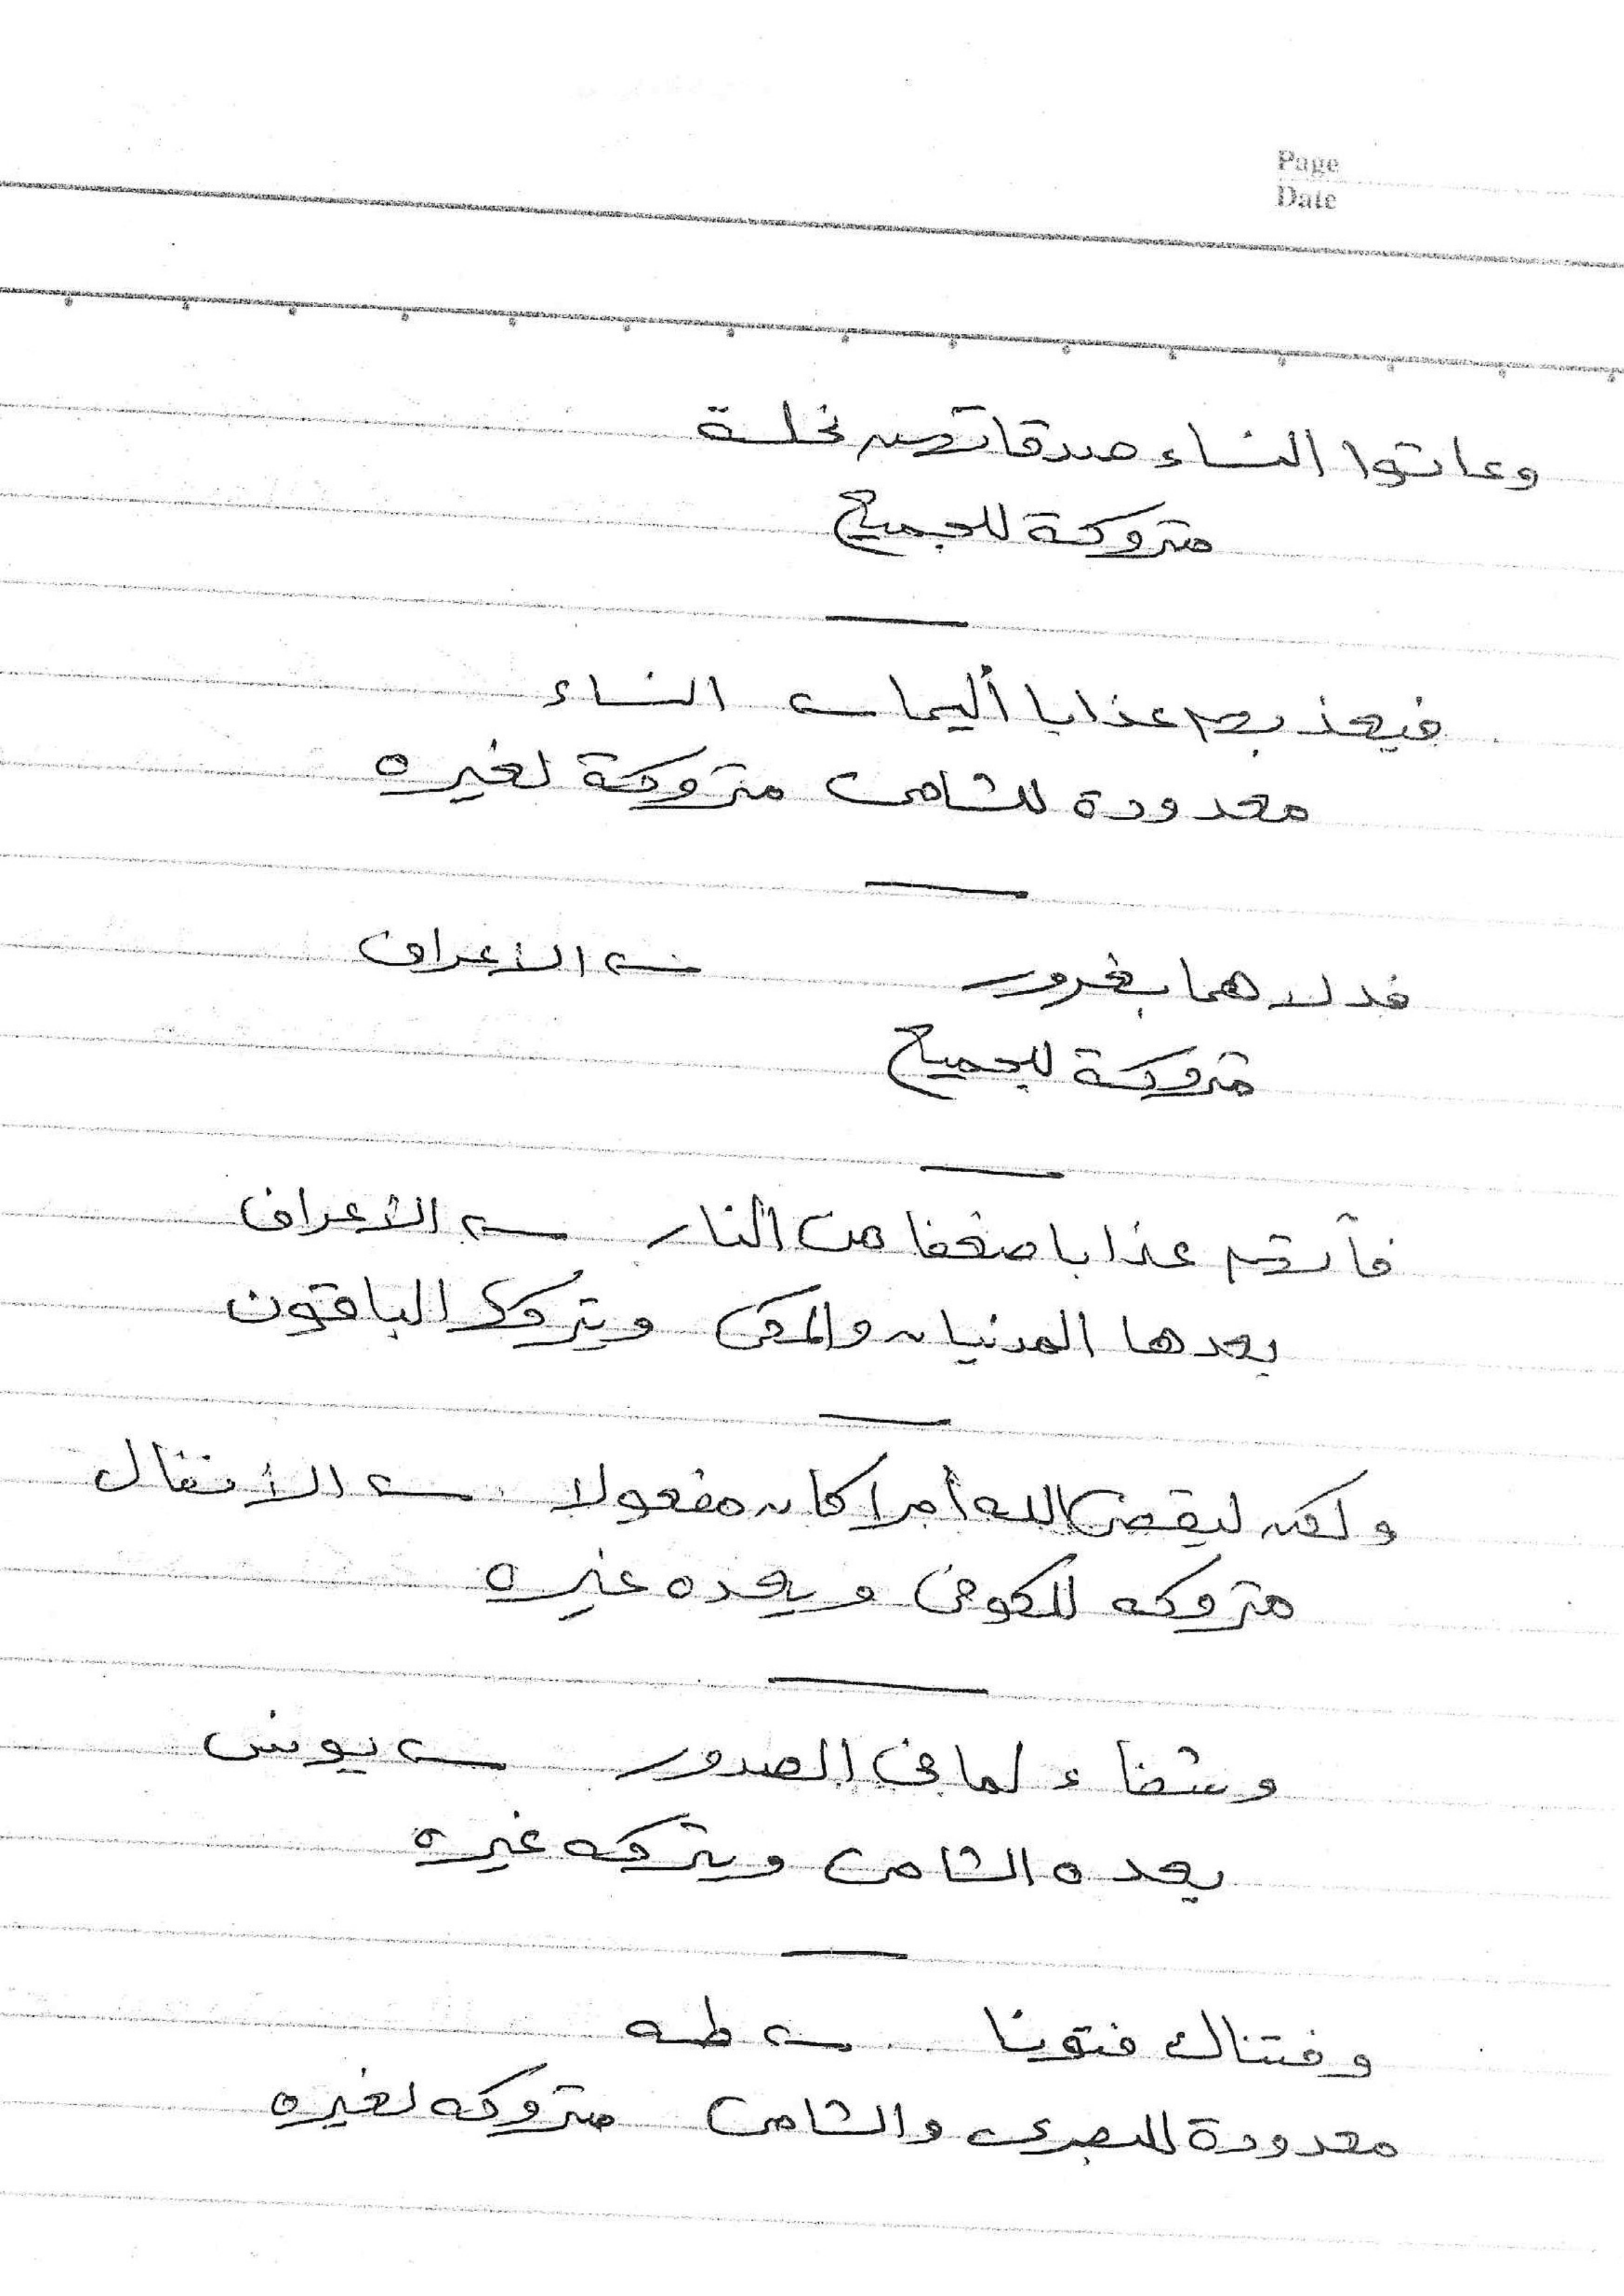 Page
Date
وءاتوا النساء صدقاتهن نحلة
متروكة للجميع
فيعذبهم عذابا أليما ـــ النساء
معدودة للشامى متروكة لغيره
فدلاهما بغرور ـــ الاعراف
متروكة للجميع
فآتهم عذابا ضعفا من النار ـــ الأعراف
يعدها المدنيان والمكى ويتركـ الباقون
ولكن ليقضى الله أمرا كان مفعولا ـــ الأنفال
متروكه للكوفى ويعده غيره
وشفاء لما فى الصدور ـــ يونس
يعده الشامى ويتركه غيره
وفتناك فتونا ـــ طه
معدودة للبصرى والشامى متروكه لغيره